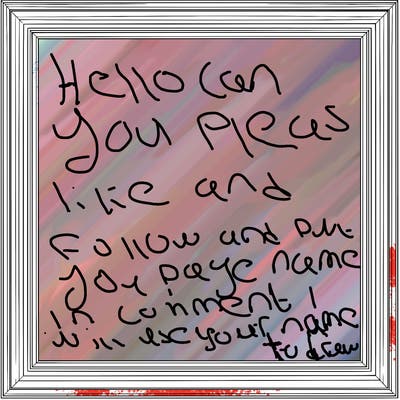 Hello can
you pleas
like and
Follow and put
you page name
in comment I
will use your name
to draw